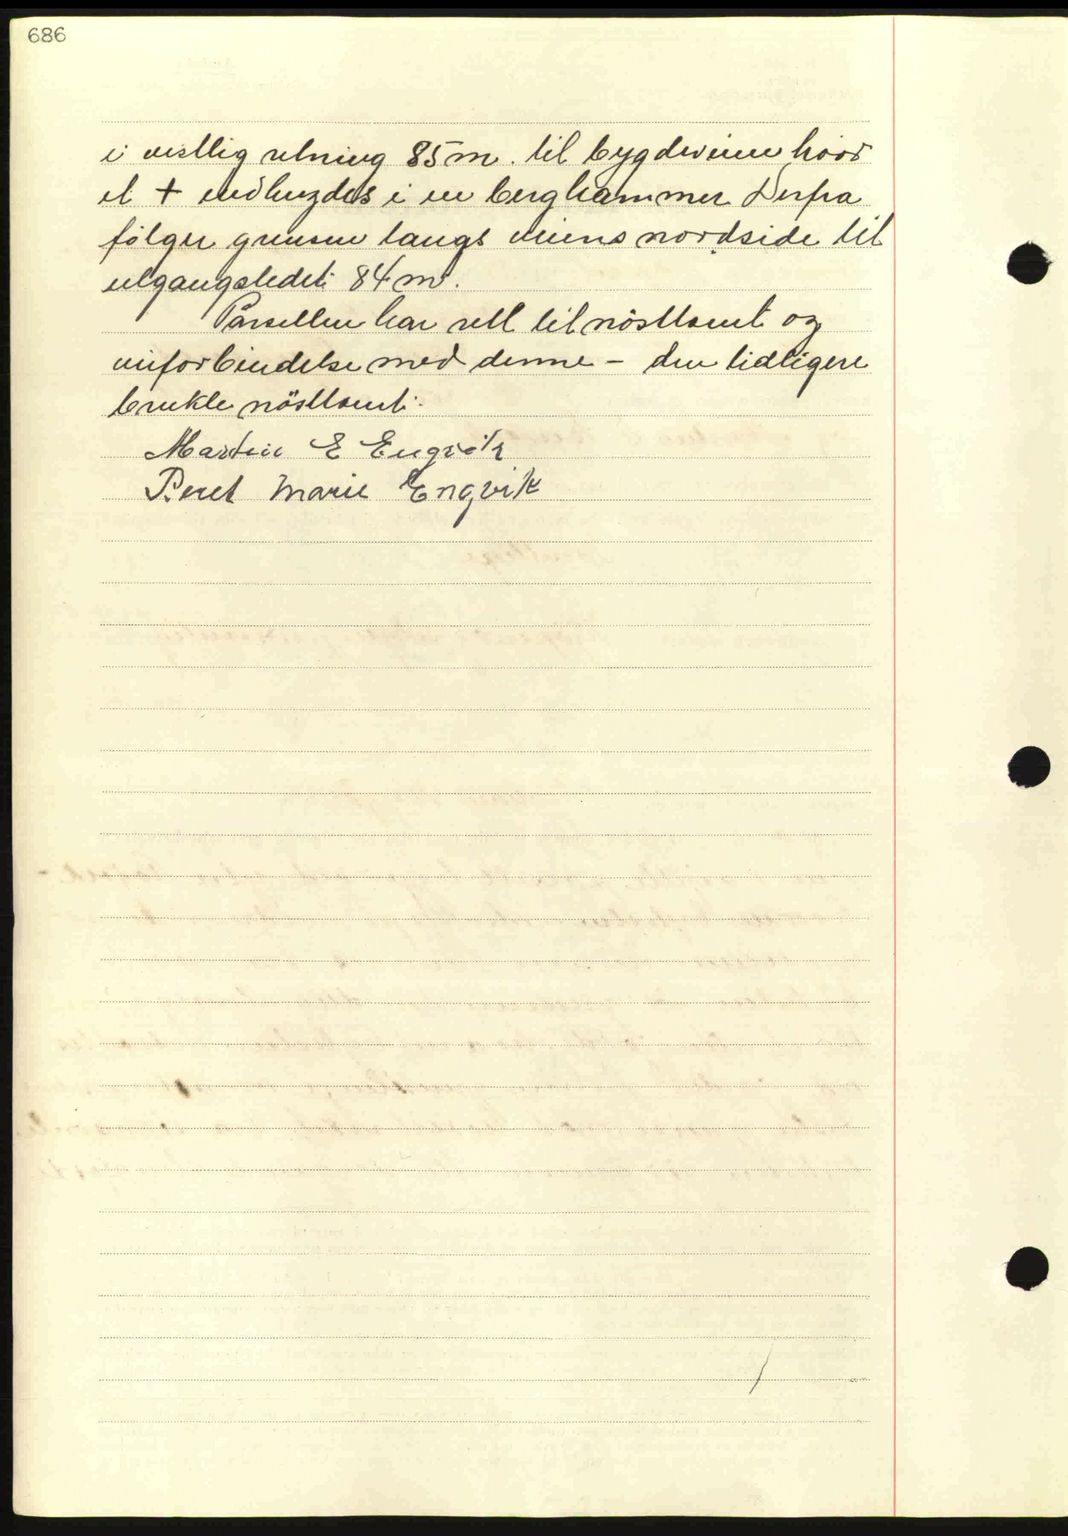 686
i vestlig retning 85 m. til bygdeveien hvor
et + indhugdes i en berghammer Derfra
følger grensen langs veiens nordside til
utgangstedet 84 m.
Parsellen har rett til nösttomt og
veiforbindelse med denne – den tidligere
brukte nösttomt.
Martin E Engvik
Beret Marie Engvik